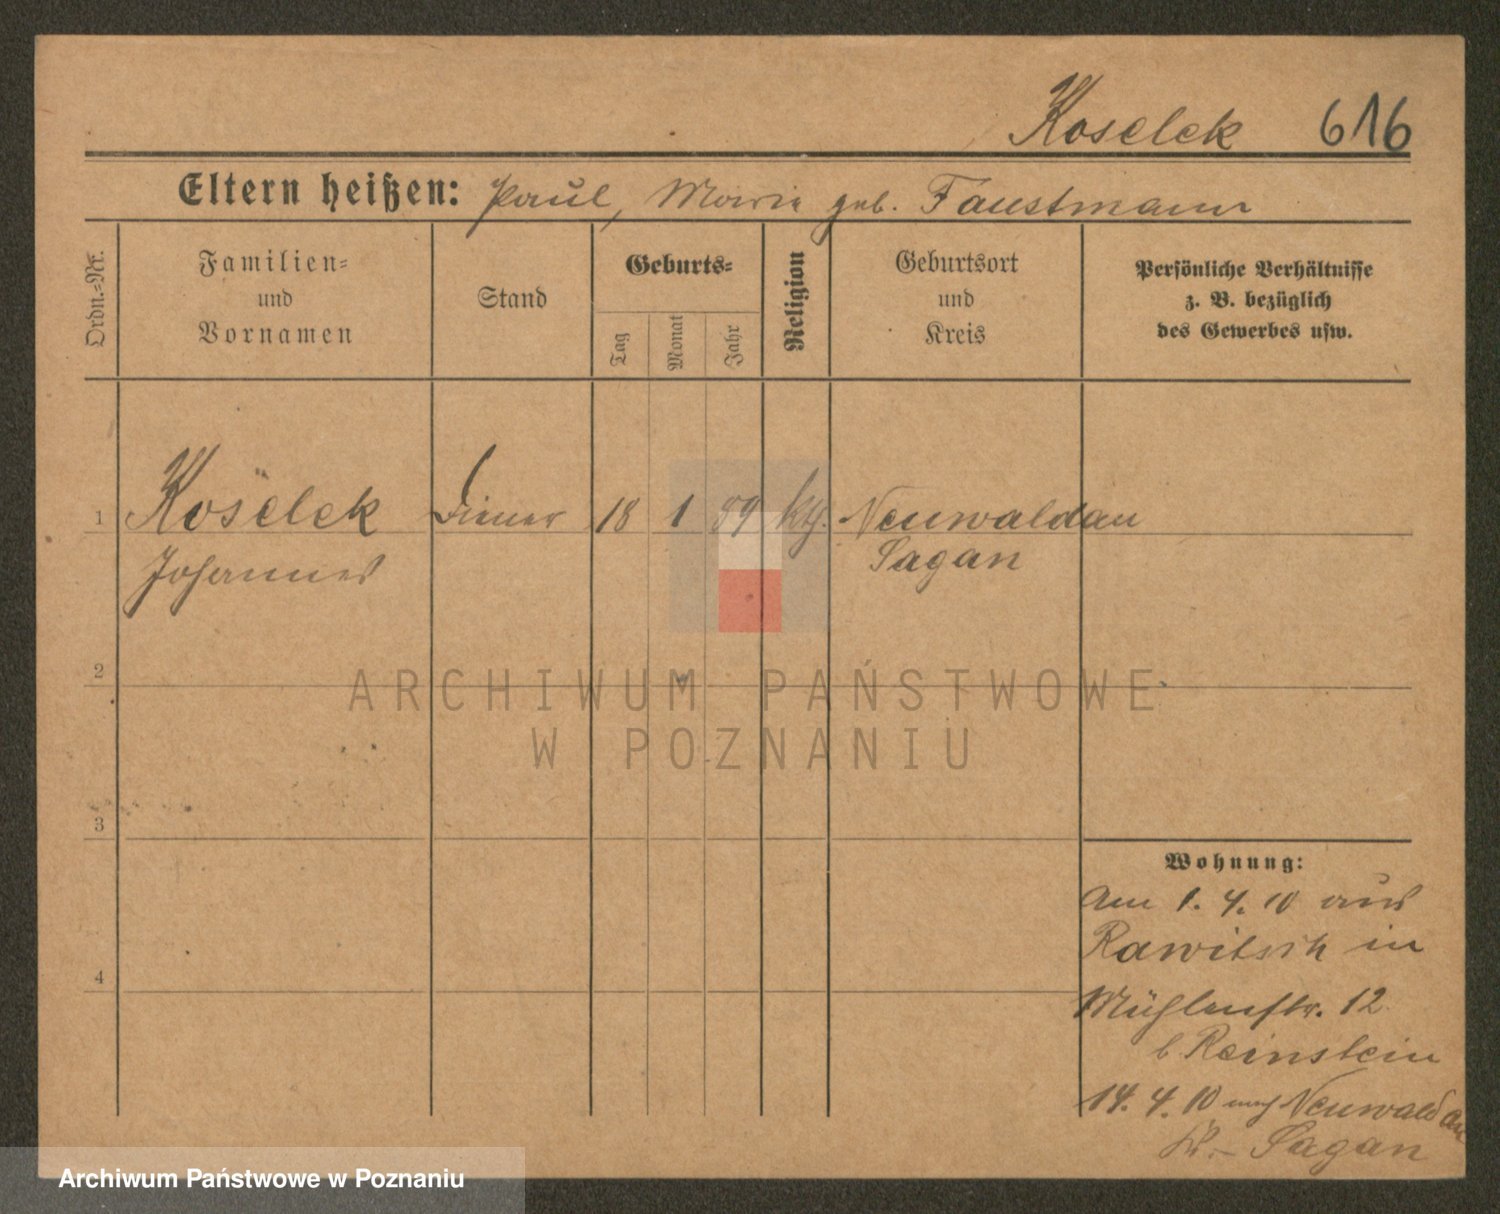 Koselek 616
Eltern heißen: Paul, Marie geb. Faustmann
Ordn.-Nr.
Familien-
und
Vornamen
Stand
Geburts-
Tag
Monat
Jahr
Religion
Geburtsort
und
Kreis
Persönliche Verhältnisse
z. B. bezüglich
des Gewerbes usw.
1 Koselek Diener 18 1 89 kth. Neuwaldau
Johannes Sagan
2
3
4
Wohnung:
Am 1. 4. 10 aus
Rawitsch in
Mühlenstr. 12
b Reinstein
14. 4. 10 nach Neuwaldau
Kr. Sagan
ARCHIWUM PAŃSTWOWE
W POZNANIU
Archiwum Państwowe w Poznaniu